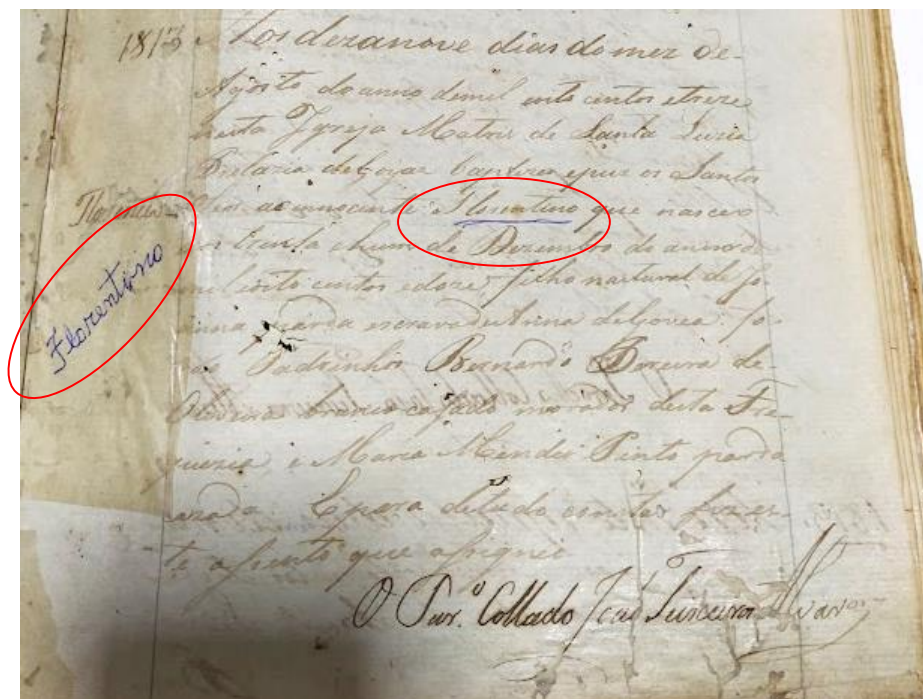 1813 Aos dezanove dias do mez de
Agosto do anno de mil oito centos e treze
nesta Igreja Matris de Santa Luzia
Prelazia de Goyaz baptizei e puz os Santos
Oleos ao innocente Florentino que nasceo
Florentino
aos trinta e hum de Dezembro do anno de
mil oito centos e doze, filho natural de Jo-
anna parda escrava de Anna de Gouvea: fo-
rão Padrinhos Bernardo Pereira de
Florentino
Oliveira branco casado morador desta Fre-
guezia, e Maria Mendes Pinto parda
cazada. E para de tudo constar fiz es-
te assento que assignei
O Par.º Collado João Teixeira Alvares